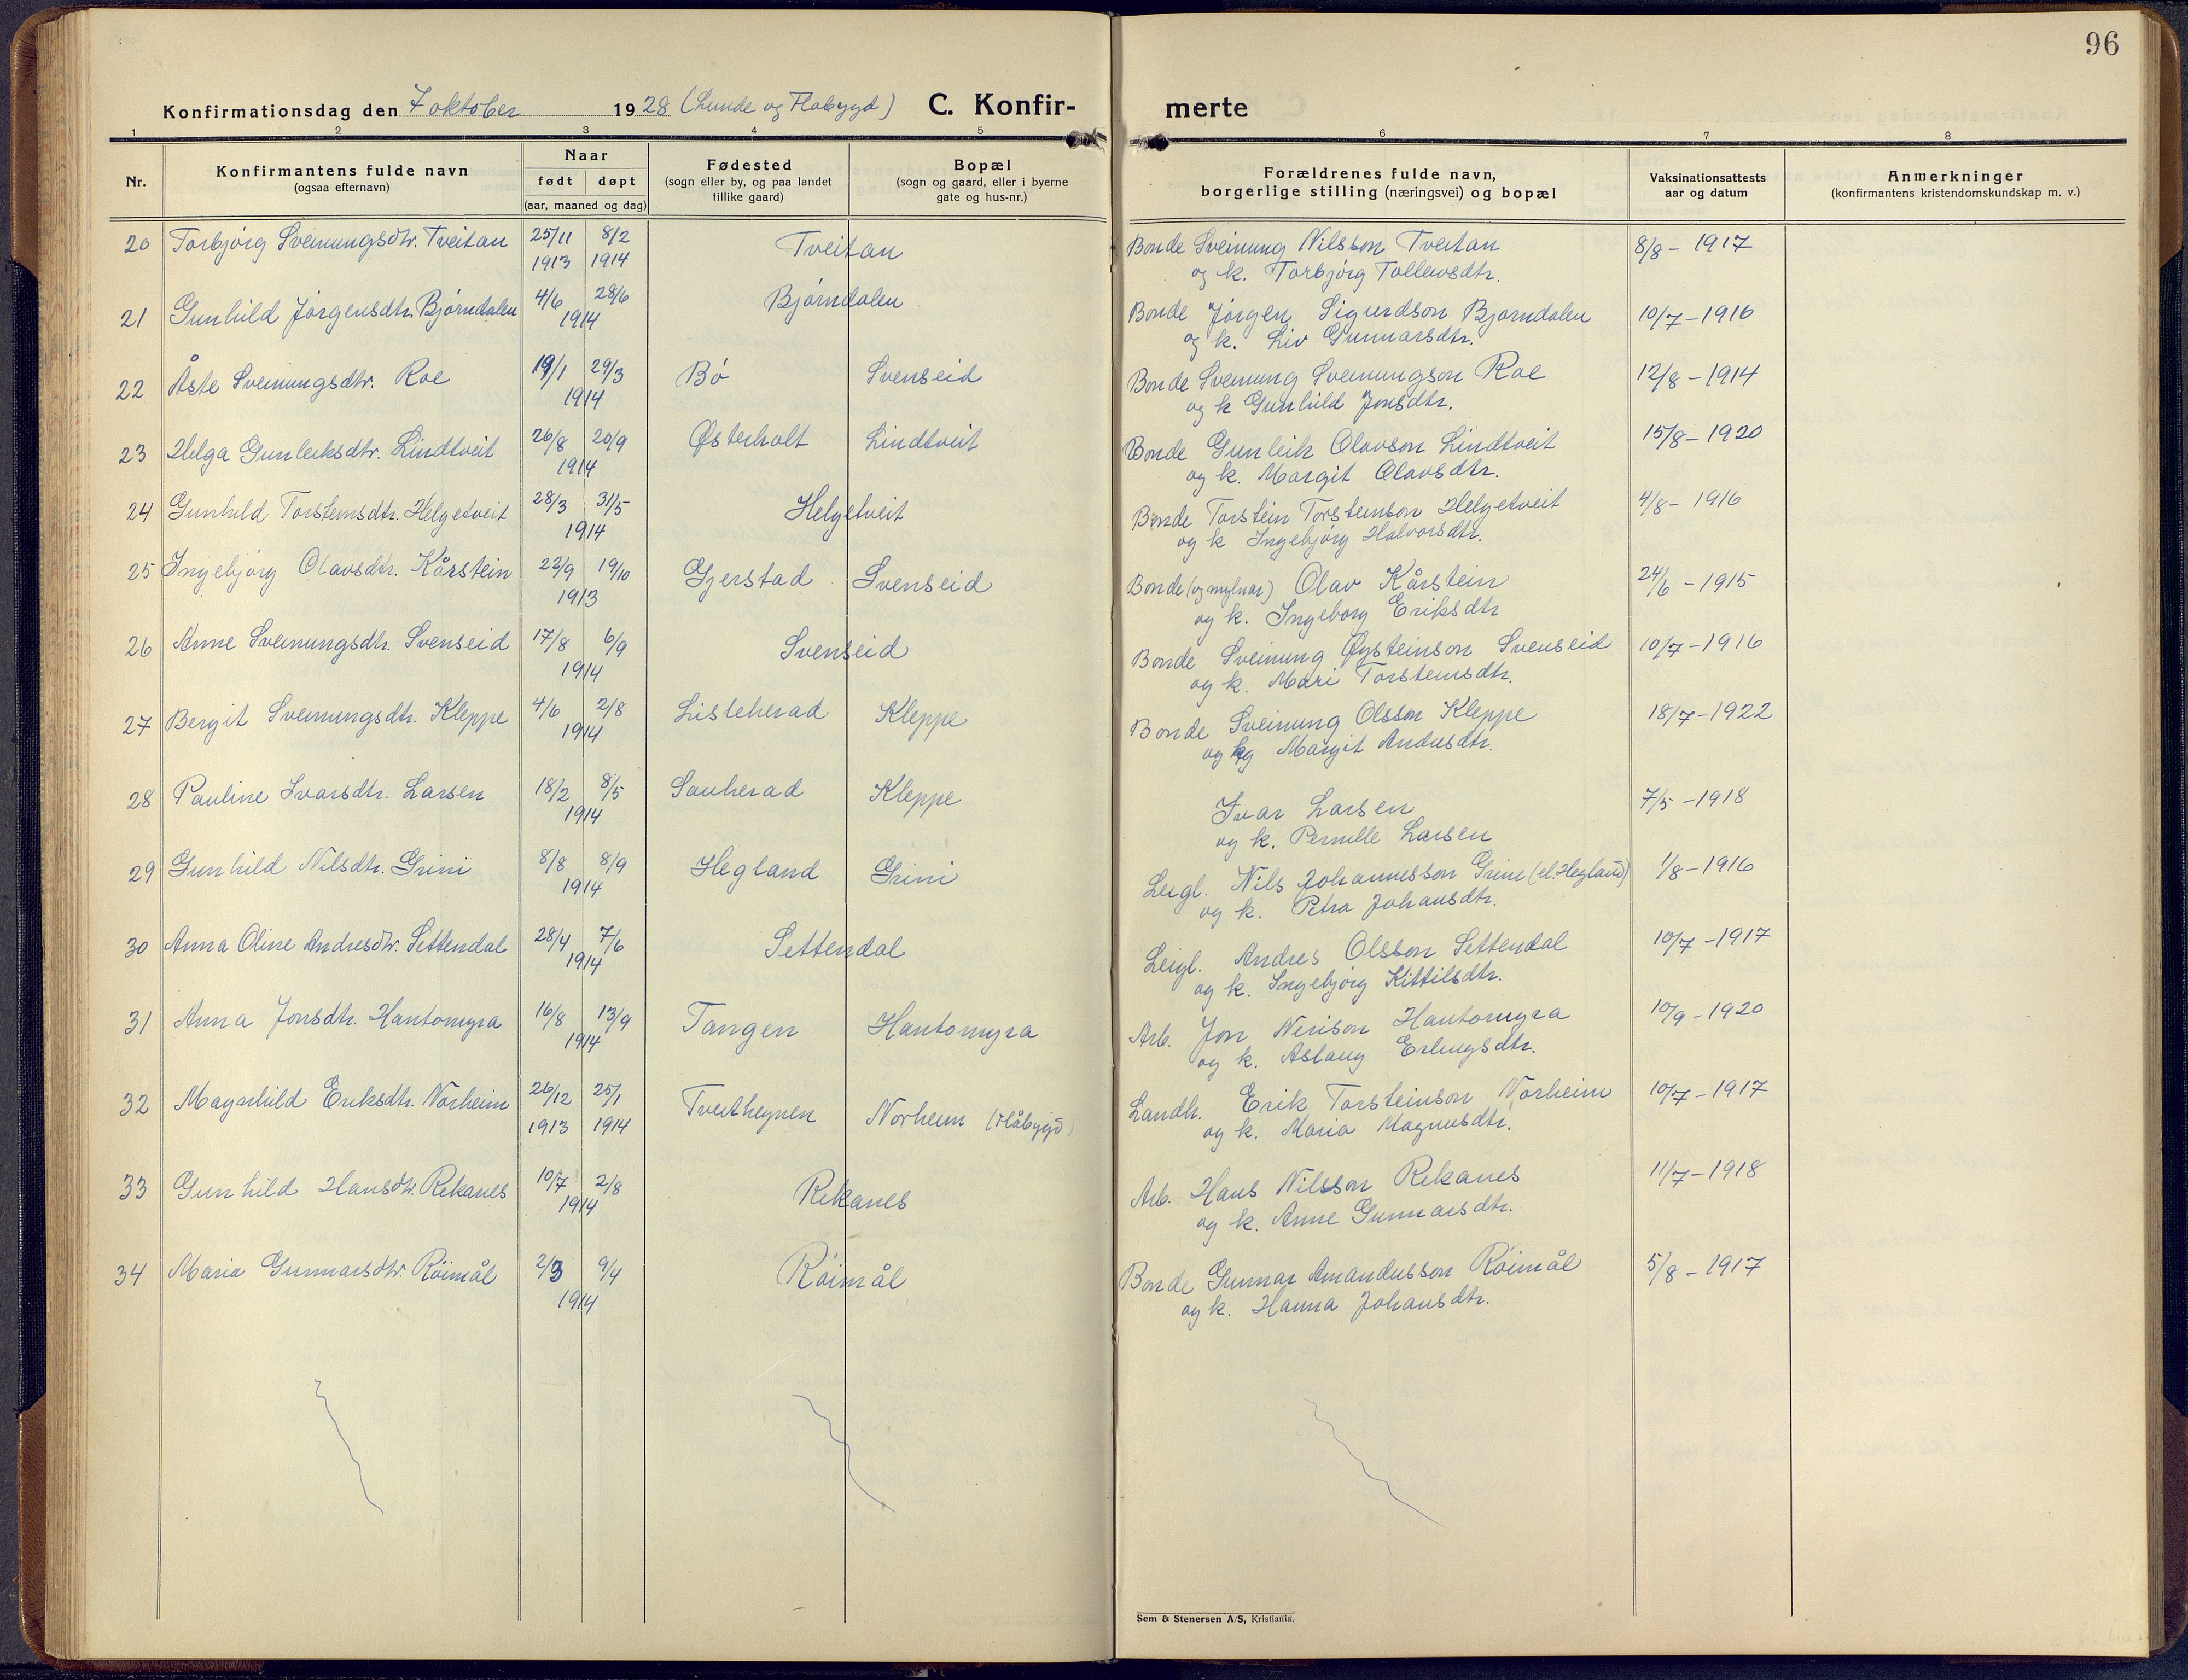 96
Konfirmationsdag den 7 oktober 1928 (Lunde og Flabygd) C. Konfir-merte
1 2 3 4 5 6 7 8
Nr. Konfirmantens fulde navn (ogsaa efternavn) Naar født døpt (aar, maaned og dag) Fødested (sogn eller by, og paa landet tillike gaard) Bopæl (sogn og gaard, eller i byerne gate og hus-nr.) Forældrenes fulde navn, borgerlige stilling (næringsvei) og bopæl Vaksinationsattests aar og datum Anmerkninger (konfirmantens kristendomskundskap m. v.)
20 Torbjørg Sveinungsdtr. Tveitan 25/11 8/2 Tveitan Bonde Sveinung Nilsson Tveitan 8/8 - 1917
1913 1914 og k. Torbjørg Tollevsdtr.
21 Gunhild Jørgensdtr. Bjørndalen 4/6 28/6 Bjørndalen Bonde Jørgen Sigurdson Bjørndalen 10/7 - 1916
1914 og k. Liv Gunnarsdtr.
22 Åste Sveinungsdtr. Roe 19/1 29/3 Bø Svenseid Bonde Sveinung Sveinungson Roe 12/8 - 1914
1914 og k Gunhild Jonsdtr.
23 Helga Gunleiksdtr. Lindtveit 26/8 20/9 Østerholt Lindtveit Bonde Gunleik Olavson Lindtveit 15/8 - 1920
1914 og k. Margit Olavsdtr.
24 Gunhild Torsteinsdtr. Helgetveit 28/3 31/5 Helgetveit Bonde Torstein Torsteinson Helgetveit 4/8 - 1916
1914 og k Ingebjørg Halvorsdtr.
25 Ingebjørg Olavsdtr. Kårstein 22/9 19/10 Gjerstad Svenseid Bonde (og mylnar) Olav Kårstein 24/6 - 1915
1913 og k. Ingeborg Eriksdtr
26 Anne Sveinungsdtr. Svenseid 17/8 6/9 Svenseid Bonde Sveinung Øysteinson Svenseid 10/7 - 1916
1914 og k. Mari Torsteinsdtr.
27 Bergit Sveinungsdtr. Kleppe 4/6 2/8 Lisleherad Kleppe Bonde Sveinung Olsson Kleppe 18/7 - 1922
1914 og kg Margit Andresdtr.
28 Pauline Ivarsdtr. Larsen 18/2 8/5 Sauherad Kleppe Ivar Larsen 7/5 - 1918
1914 og k. Pernille Larsen
29 Gunhild Nilsdtr. Grini 8/8 8/9 Hegland Grini Leigl. Nils Johannesson Grini (el. Hegland) 1/8 - 1916
1914 og k. Petra Johansdtr.
30 Anna Oline Andresdtr. Settendal 28/4 7/6 Settendal Leigl. Andres Olsson Settendal 10/7 - 1917
1914 og k. Ingebjørg Kittilsdtr.
31 Anna Jonsdtr. Hantomyra 16/8 13/9 Tangen Hantomyra Arb. Jon Nerison Hantomyra 10/9 - 1920
1914 og k. Aslaug Erlingsdtr.
32 Magnhild Eriksdtr. Norheim 26/12 25/1 Tveithegnen Norheim (Flåbygd) Landh. Erik Torsteinson Norheim 10/7 - 1917
1913 1914 og k. Maria Magnusdtr.
33 Gunhild Hansdtr. Rekanes 10/7 2/8 Rekanes Arb. Hans Nilsson Rekanes 11/7 - 1918
1914 og k. Anne Gunnarsdtr.
34 Maria Gunnarsdtr. Røimål 2/3 9/4 Røimål Bonde Gunnar Amandusson Røimål 5/8 - 1917
1914 og k. Hanna Johansdtr.
Sem & Stenersen A/S, Kristiania.